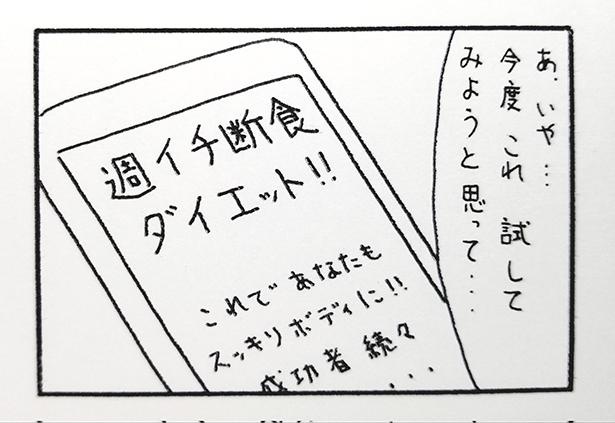 あ、いや…
今度 これ 試して
みようと思って…
週イチ断食
ダイエット!!
これで あなたも
スッキリボディに!!
成功者 続々
・・・